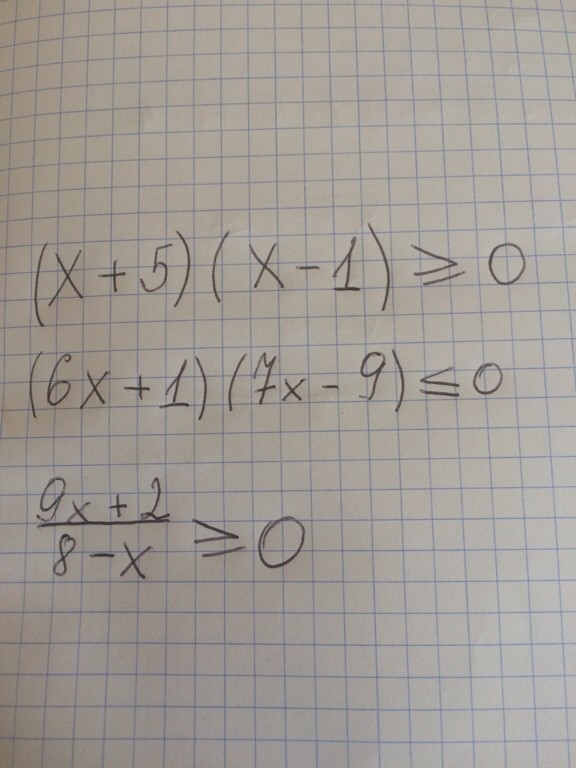 (x + 5)(x - 1) ⩾ 0
(6x + 1)(7x - 9) ≤ 0
9x + 2
8 - x ⩾ 0